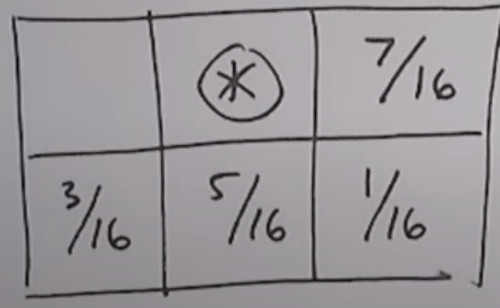 * 7/16
3/16 5/16 1/16